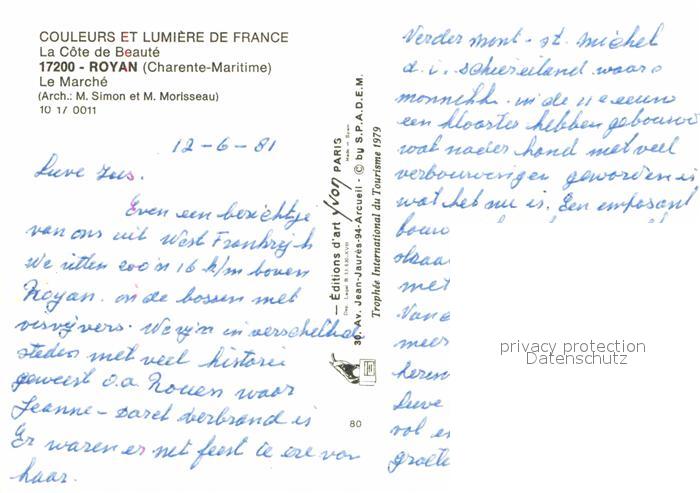 COULEURS ET LUMIÈRE DE FRANCE
La Côte de Beauté
17200 - ROYAN (Charente-Maritime)
Le Marché
(Arch.: M. Simon et M. Morisseau)
10 17 0011
12-6-81
Lieve Zus.
Even een berichtje
van ons uit West Frankrijk
We zitten zoo'n 16 k/m boven
Royan. in de bossen met
visvijvers. We zijn in verschellende
steden met veel historie
geweest o.a. Rouen waar
Jeanne-Darct verbrand is
Er waren er net feest te ere van
haar.
— Éditions d'art yvon PARIS
Made in
Dép. Légal
30, Av. Jean-Jaurès-94-Arcueil - © by S.P.A.D.E.M.
Trophée International du Tourisme 1979
80
Verder mont-st. michel
d.i. schiereiland waar
monnikk. in de 11e eeuw
een klooster hebben gebouwd
wat nader hand met veel
verbouwingen geworden is
wat het nu is. Een emposant
bouw
met
meer
Lieve
groete
privacy protection
Datenschutz